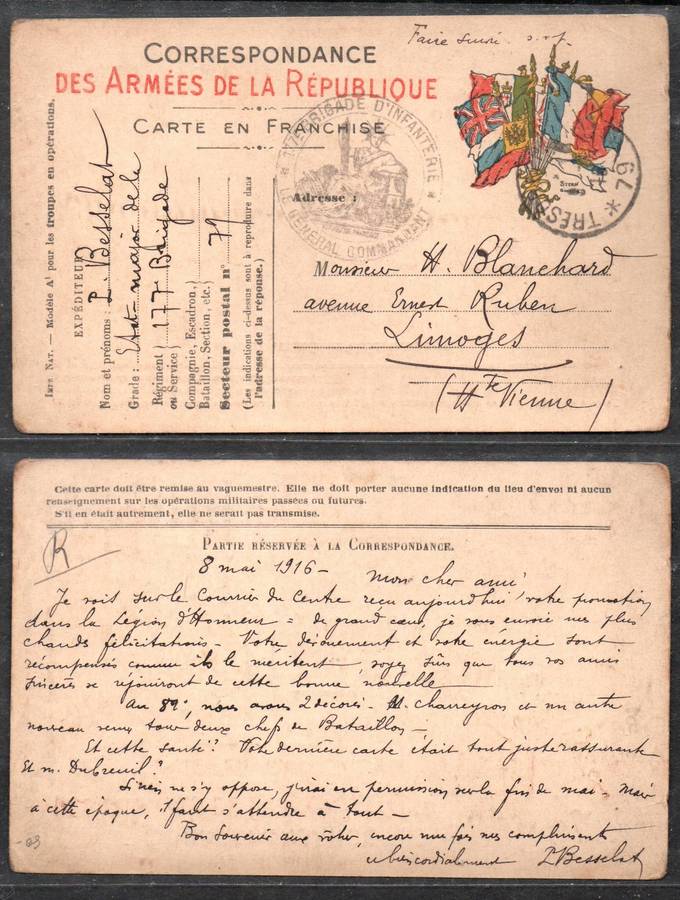 Faire suivre s.v.p.
CORRESPONDANCE
DES ARMÉES DE LA RÉPUBLIQUE
CARTE EN FRANCHISE
177e BRIGADE D'INFANTERIE
LE GÉNÉRAL COMMANDANT
TRÉSOR
* 79
STERN
Adresse :
Monsieur H. Blanchard
avenue Ernest Ruben
Limoges
(Hte Vienne)
IMPR NAT. — Modèle A1 pour les troupes en opérations.
EXPÉDITEUR
Nom et prénoms : P. Besselat
Grade : Etat-major de la
Régiment ou Service) 177e Brigade
Compagnie, Escadron,
Bataillon, Section, etc.)
Secteur postal n° 79
(Les indications ci-dessus sont à reproduire dans
l'adresse de la réponse.)
Cette carte doit être remise au vaguemestre. Elle ne doit porter aucune indication du lieu d'envoi ni aucun
renseignement sur les opérations militaires passées ou futures.
S'il en était autrement, elle ne serait pas transmise.
R
PARTIE RÉSERVÉE À LA CORRESPONDANCE.
8 mai 1916 — Mon cher ami
Je vois sur le Courrier du Centre reçu aujourd'hui votre promotion
dans la Légion d'Honneur = de grand cœur, je vous envoie mes plus
chauds félicitations — Votre dévouement et votre énergie sont
récompensés comme ils le méritent, soyez sûrs que tous vos amis
sincères se réjouiront de cette bonne nouvelle
Au 89e, nous avons 2 décorés — M. Charreyron et un autre
nouveau venu tous deux chefs de Bataillon —
Et cette santé ? Votre dernière carte était tout juste rassurante
Et M. Dubreuil ?
Si rien ne s'y oppose, j'irai en permission vers la fin de mai — Mais
à cette époque, il faut s'attendre à tout —
Bon souvenir aux vôtres, encore une fois mes compliments
et bien cordialement P. Besselat